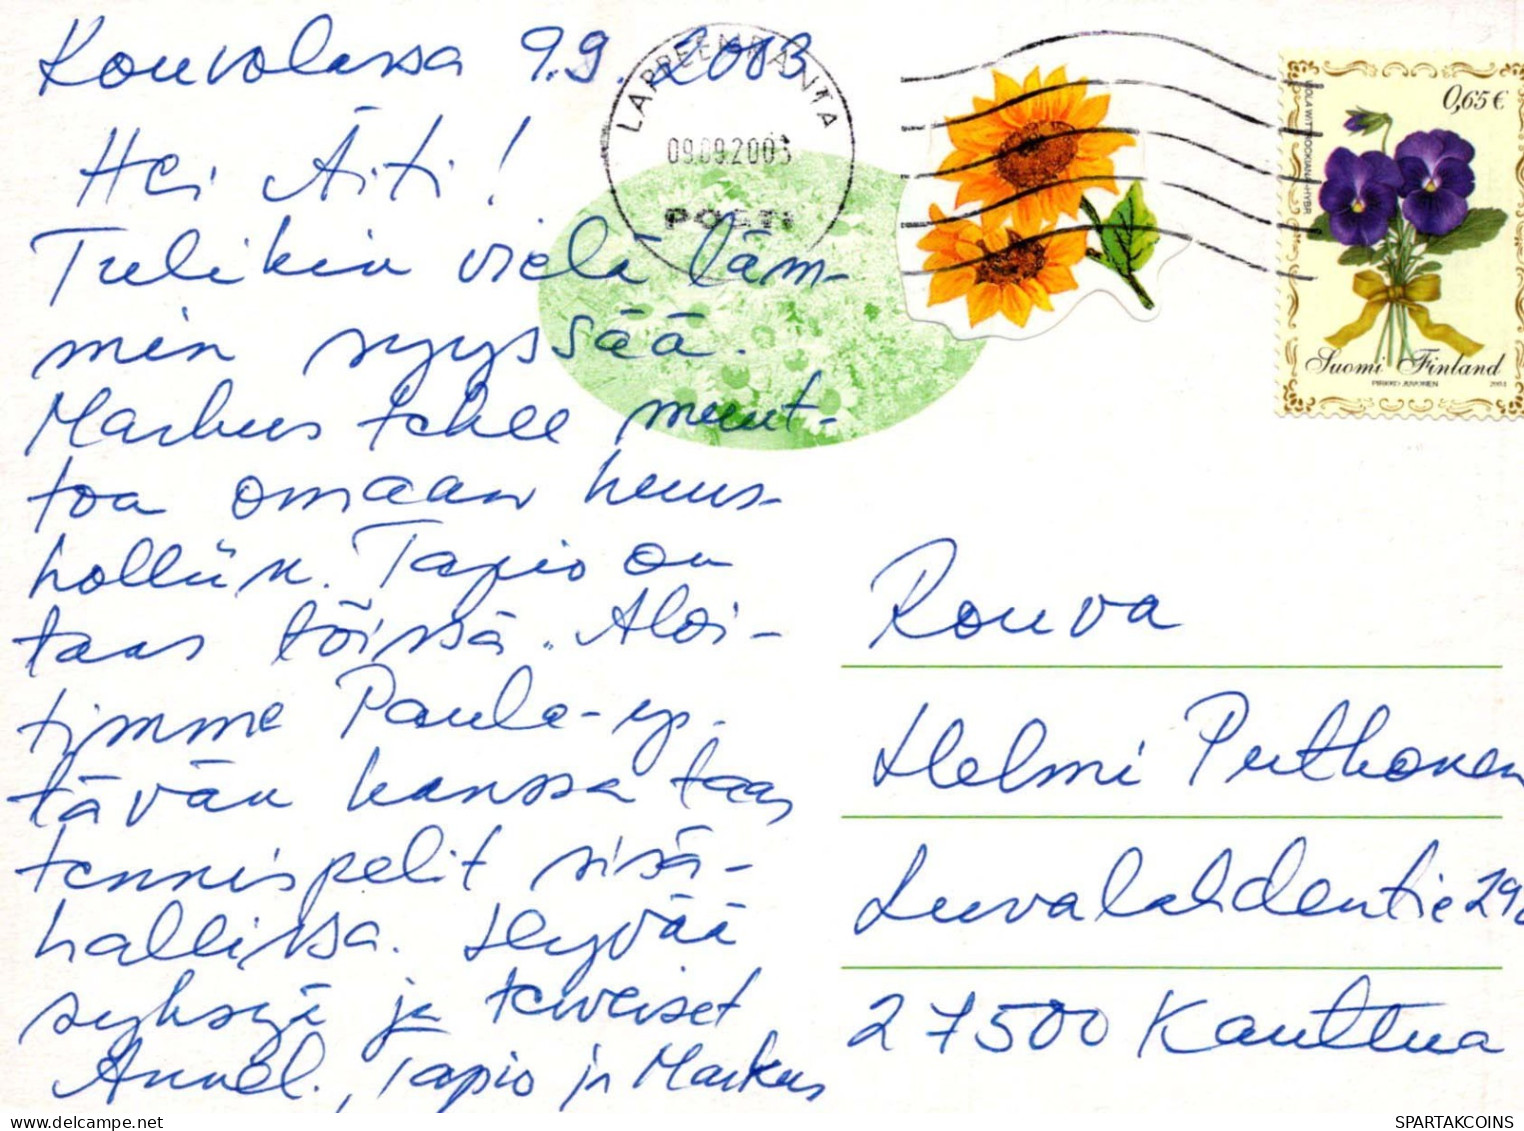 Kouvolassa 9.9. 2003
Hei Äiti!
Tulikin vielä läm-
min syyssää.
Markus tekee muut-
toa omaan huus-
holliin. Tapio on
taas töissä. Aloi-
timme Paula-ys-
tävän kanssa taas
tennispelit sisä-
hallissa. Hyvää
syksyä ja terveiset
Annel., Tapio ja Markus
LAPPEENRANTA
09.09.2003
POSTI
0,65€
VIOLA WITTROCKIANA-HYBR
Suomi Finland
PIRKKO JUVONEN
Rouva
Helmi Puthonen
Luvalahdentie 29
27500 Kauttua
SPARTAKCOINS